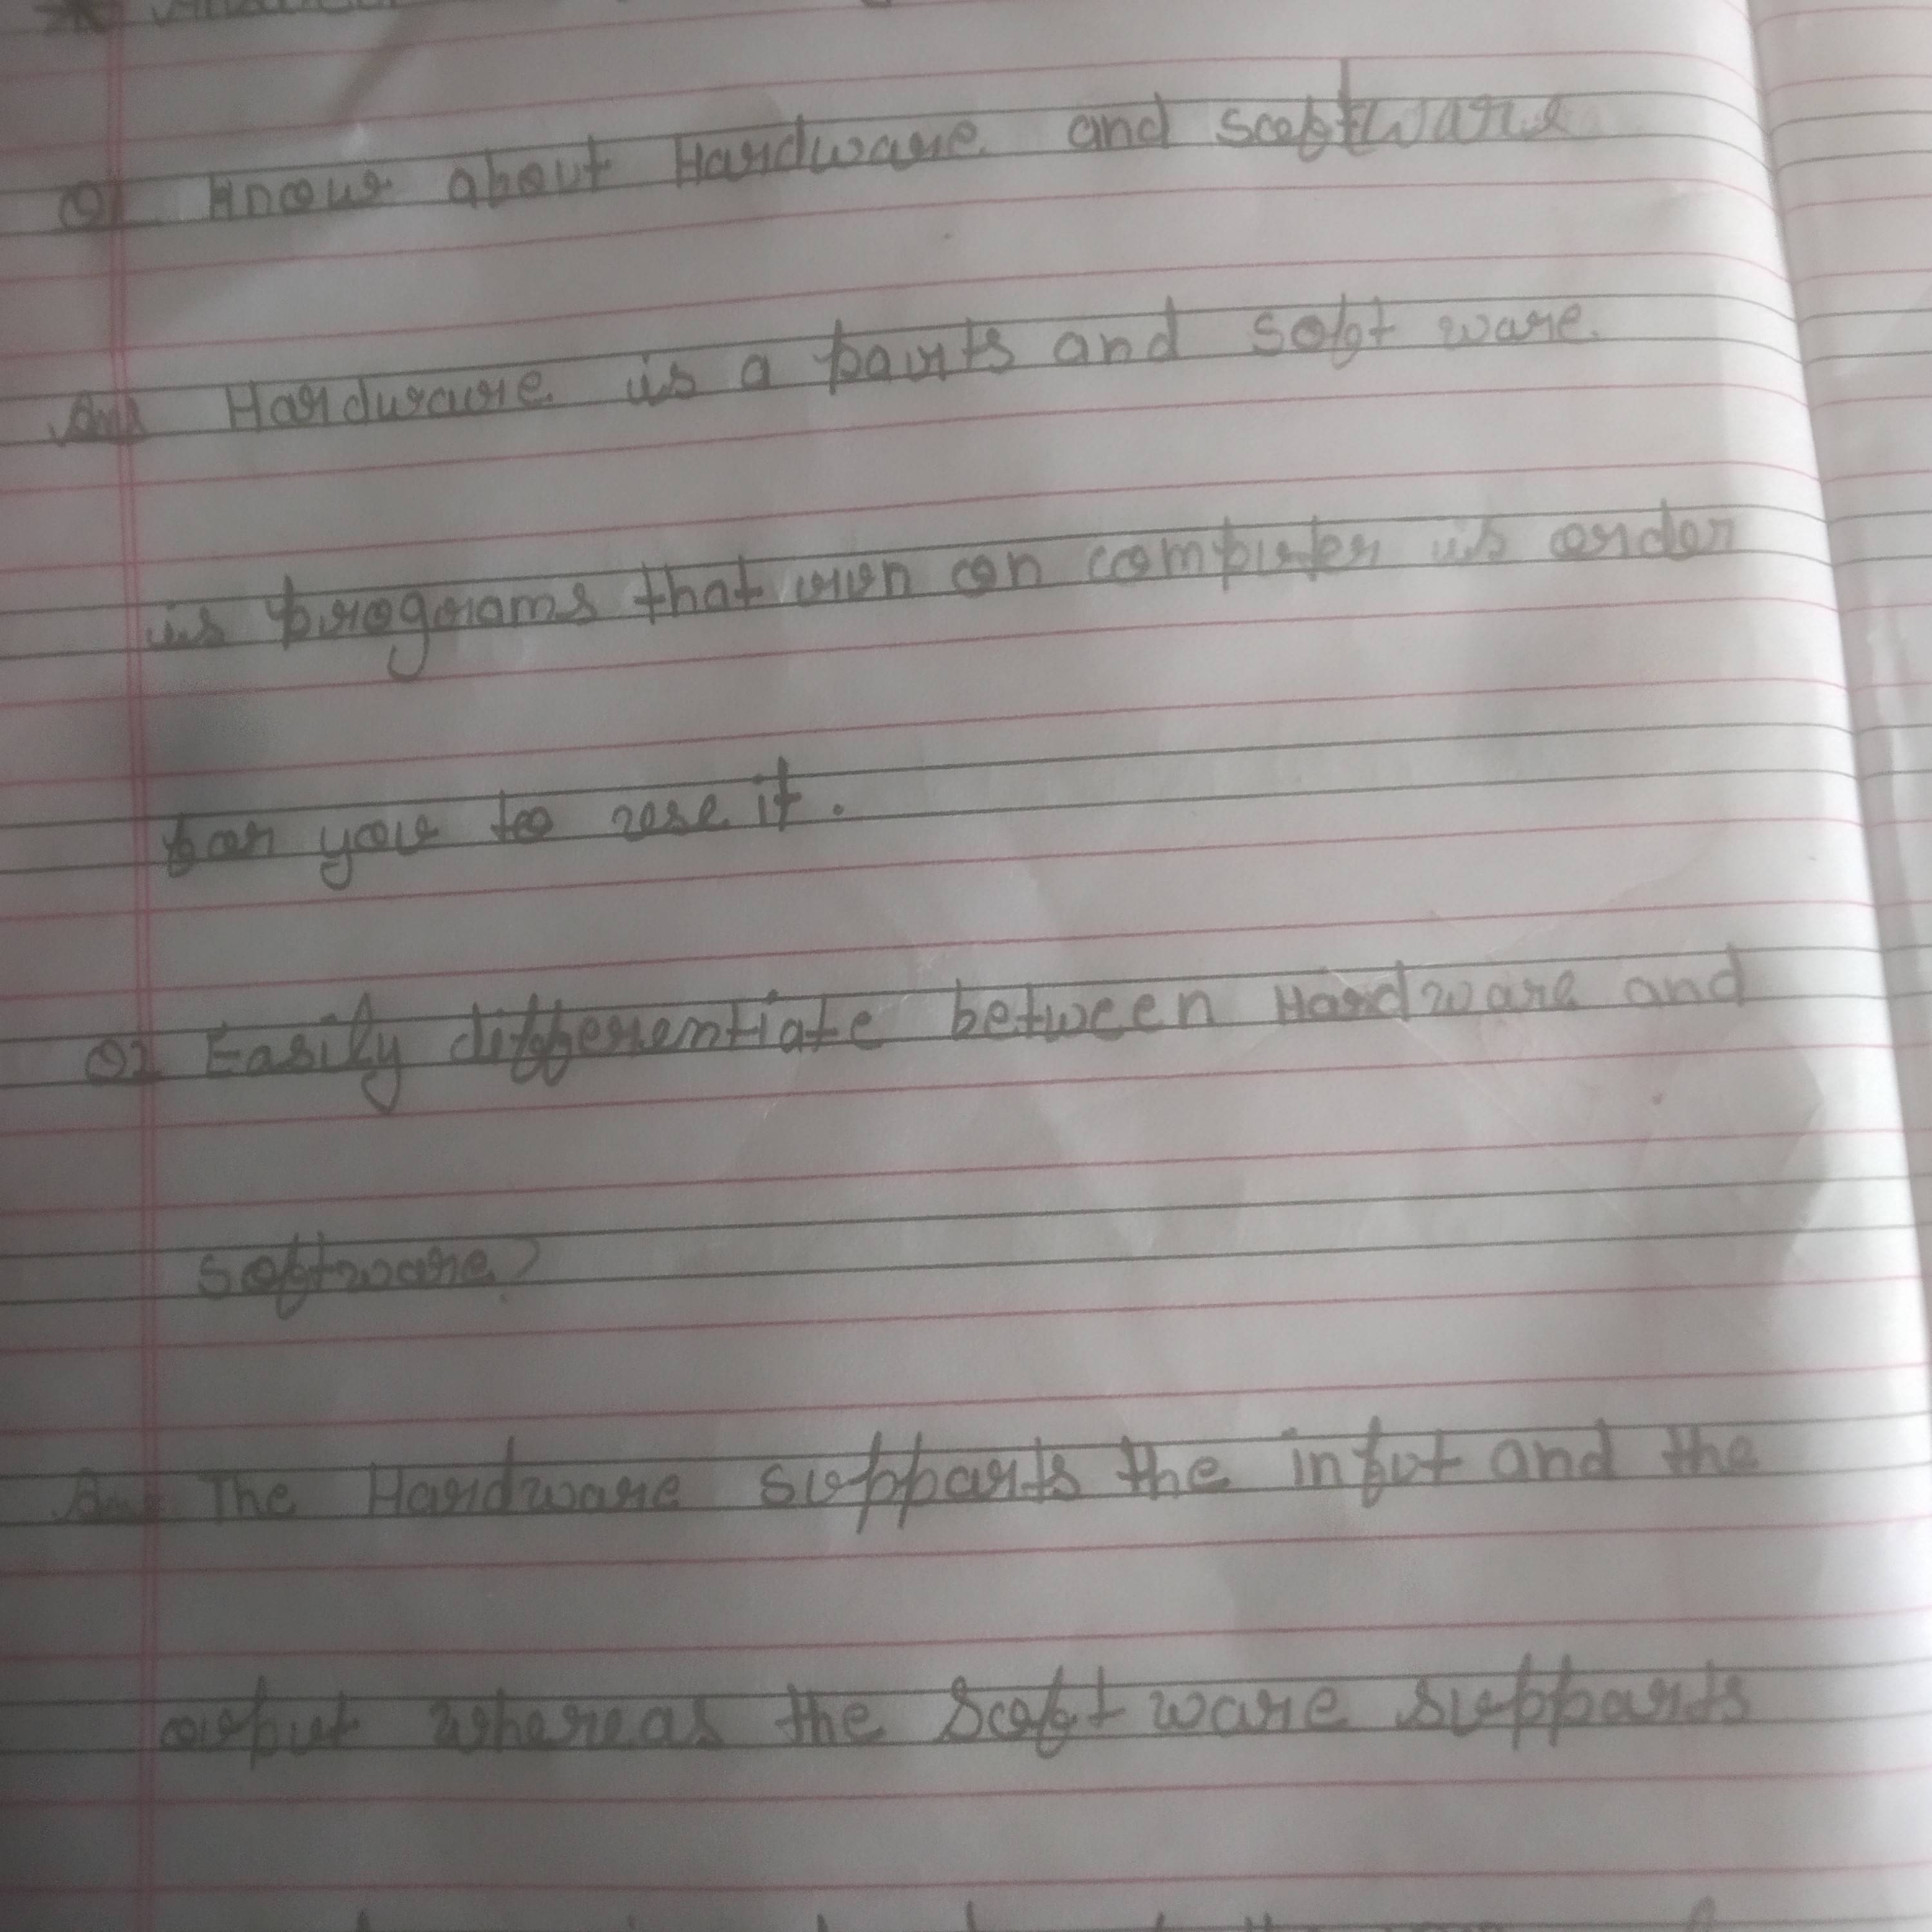 Q1 Know about Hardware and software
Ans Hardware is a parts and soft ware
is programs that run on computer is order
for you to use it.
Q2 Easily differentiate between Hardware and
software?
Ans The Hardware supports the input and the
output whereas the Soft ware supports